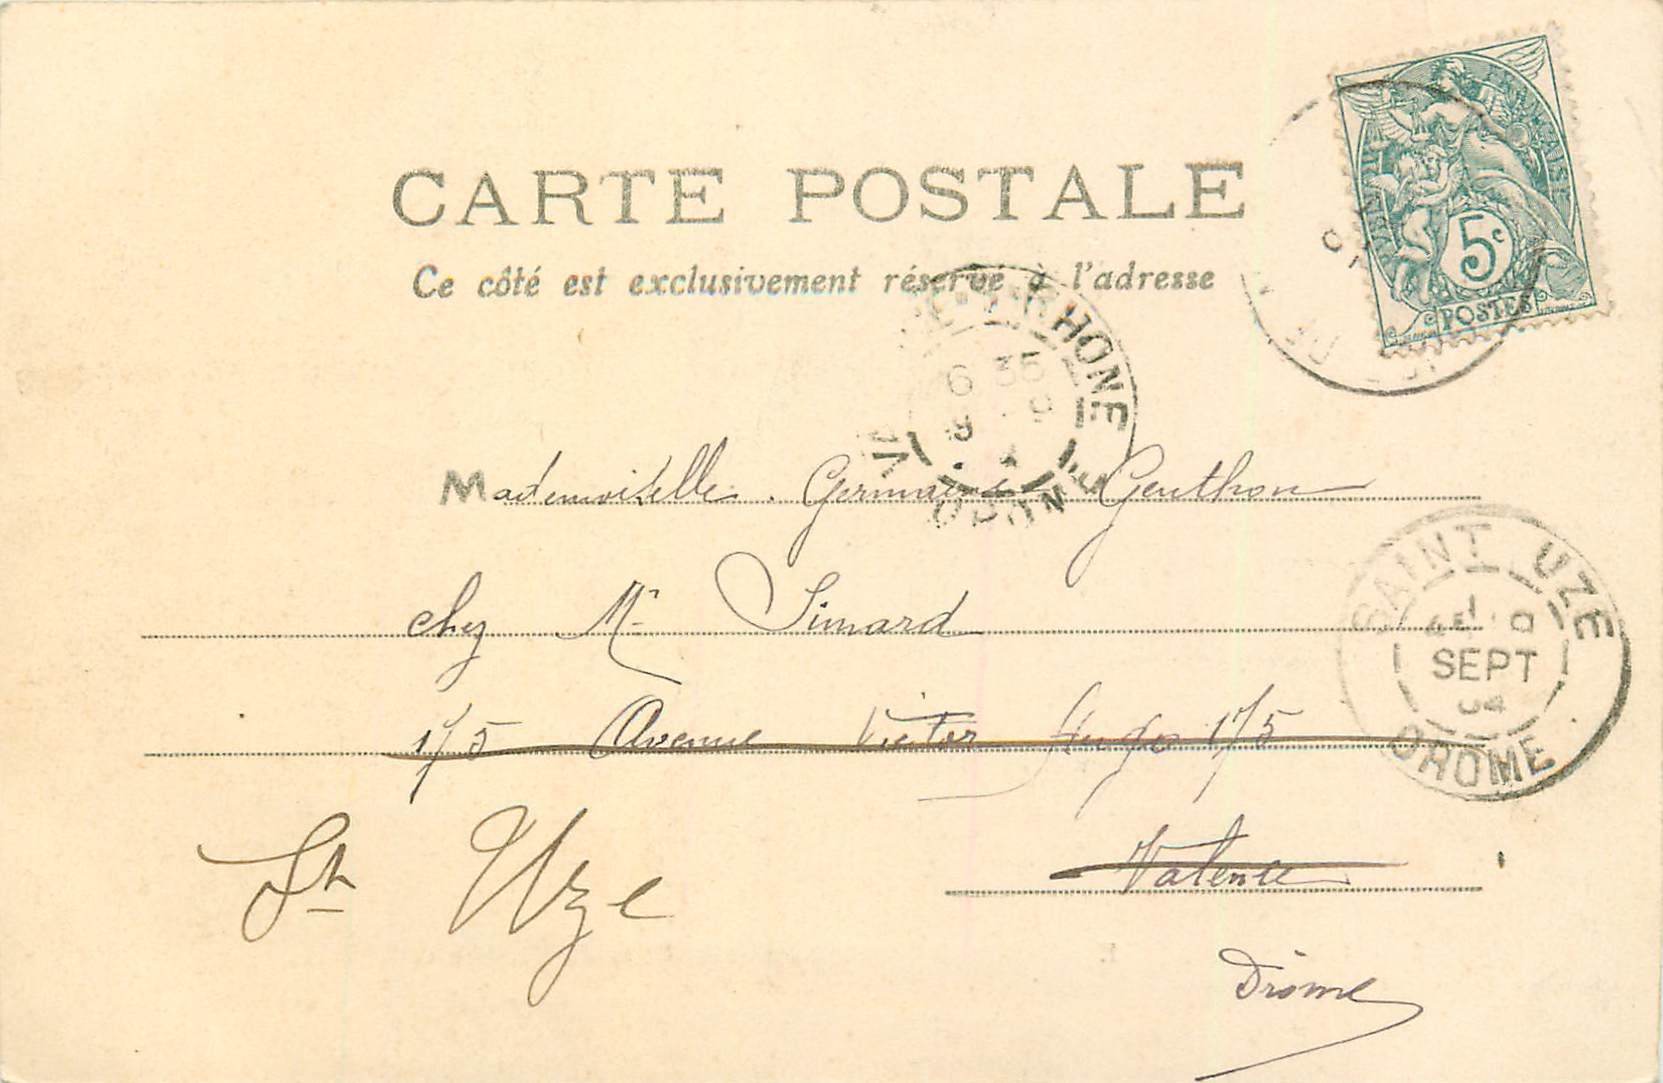 CARTE POSTALE
Ce côté est exclusivement réservé à l'adresse
POSTES
5c
RHONE
6 35
DROME
Mademoiselle Germaine Genthon
chez Mr Simard
175 Avenue Victor Hugo 175
Valence
St Uze
Drôme
SAINT UZE
SEPT
04
DROME